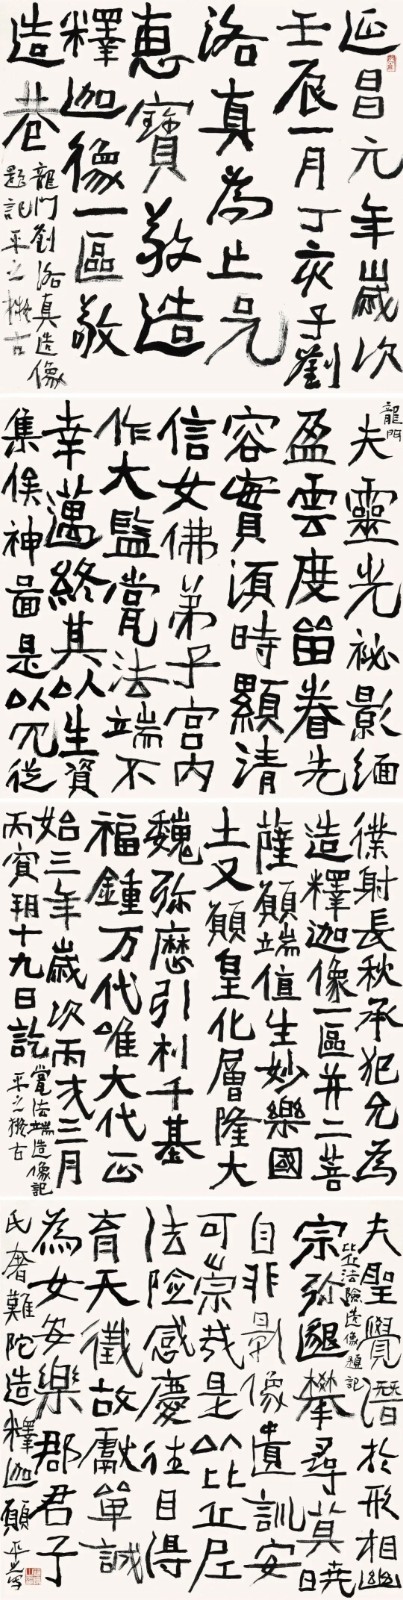 延昌元年歲次
壬辰一月丁亥子劉
洛真為亡兄
惠寶敬造
釋迦像一區敬
造巷
龍門劉洛真造像
題記平之擬古
龍門
夫靈光祕影緬
盈雲度留眷先
容實須時顯清
信女佛弟子宮內
作大監瓽法端不
幸邁終其以生資
集俟神啚是以冗從
僕射長秋承祀允為
造釋迦像一區并二菩
薩願端值生妙樂國
土又願皇化層隆大
魏弥歷引利千基
福鍾万代唯大代正
始三年歲次丙戌三月
丙寅朔十九日訖
瓽法端造像記
平之擬古
夫聖覺潛於形相幽
宗弥邈攀尋莫曉
比丘法險造像題記
自非影像遺訓安
可崇哉是以比丘尼
法險感慶往目得
育天徵故獻單誠
為女安樂郡君于
氏奢難陀造釋迦願
平之